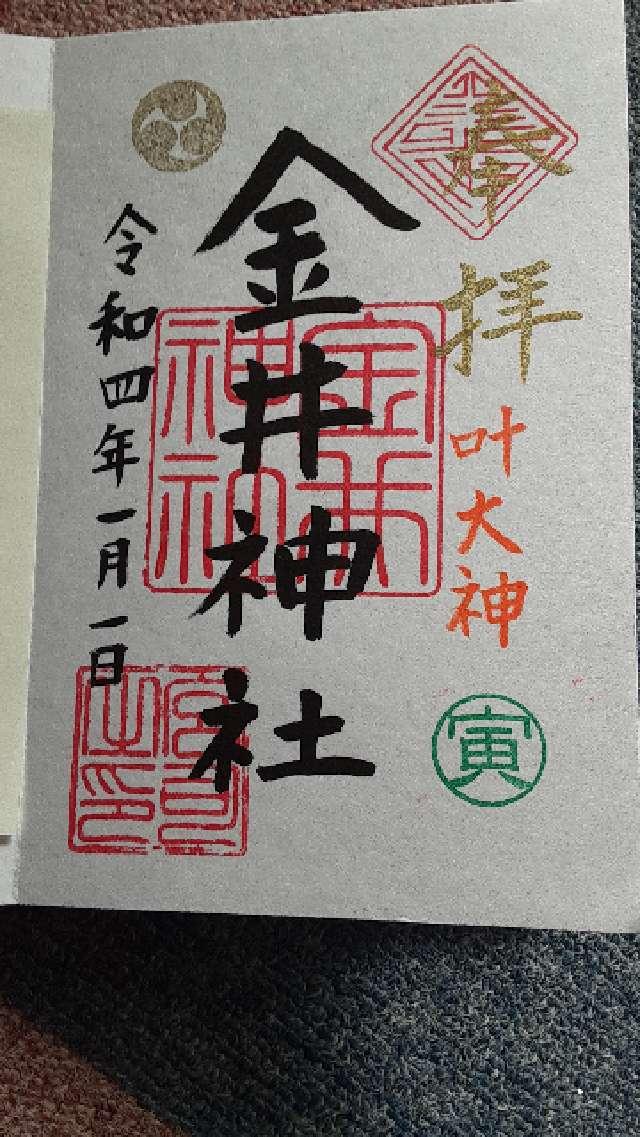 奉拝
叶大神
寅
金井神社
金井神社
令和四年一月一日
宮司之印